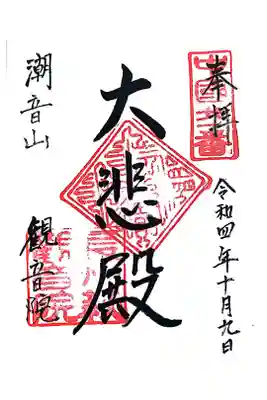 奉拝
令和四年十月九日
大悲殿
潮音山
観音院